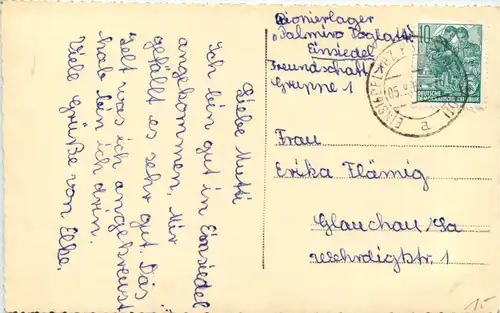 Liebe Mutti
Ich bin gut in Einsiedel
angekommen. Mir
gefällt es sehr gut. Das
Zelt was ich angekreust
hab bin ich drin.
Viele Grüße von Elke.
Pionierlager
"Palmiro Togliatti"
Einsiedel
Freundschaft
Gruppe 1
10
DEUTSCHE
DEMOKRATISCHE REPUBLIK
EINSIEDEL
05.8.
a
Frau
Erika Flämig
Glauchau Sa
Wehrdigtstr. 1
15